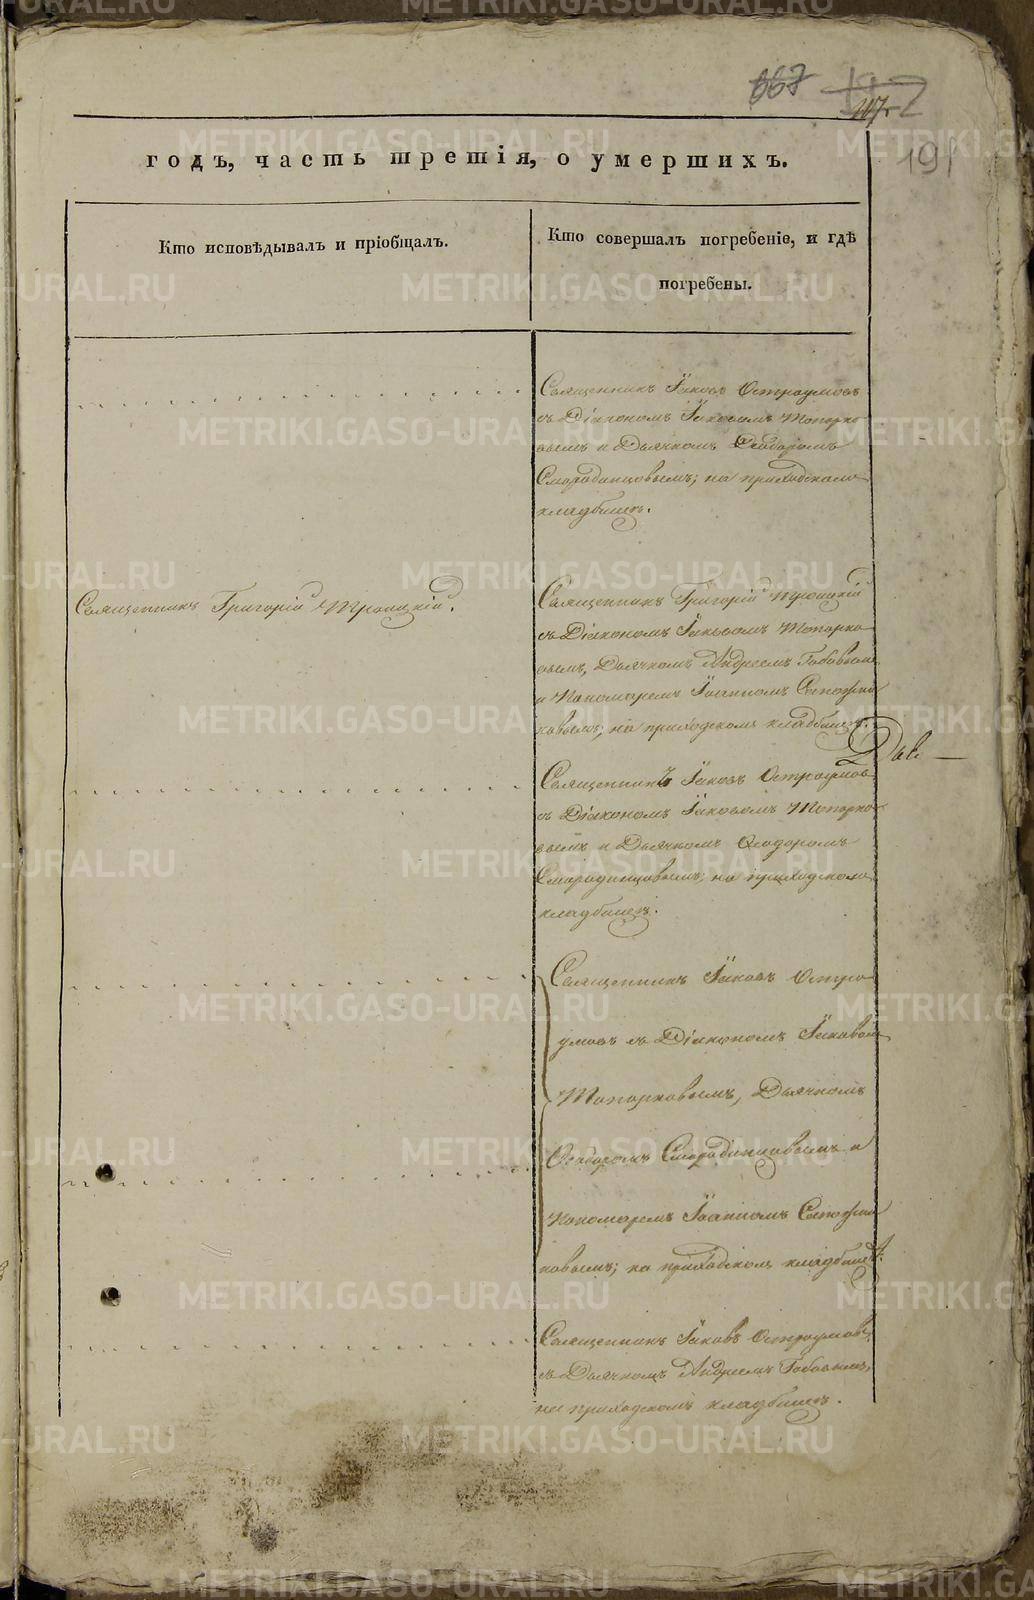 667
117
192
191
годъ, часть третія, о умершихъ.
Кто исповѣдывалъ и пріобщалъ.
Кто совершалъ погребеніе, и гдѣ
погребены.
Священникъ Іаковъ Остроумовъ
съ Діакономъ Іаковомъ Топорко-
вымъ и Дьячкомъ Ѳеодоромъ
Смородинцовымъ; на приходскомъ
кладбищѣ.
Священникъ Григорій Троицкій.
Священникъ Григорій Троицкій
съ Діакономъ Іаковомъ Топорко-
вымъ, Дьячкомъ Андреемъ
и Пономаремъ Іоанномъ Сапожни-
ковымъ; на приходскомъ кладбищѣ.
Священникъ Іаковъ Остроумовъ
съ Діакономъ Іаковомъ Топорко-
вымъ и Дьячкомъ Ѳеодоромъ
Смородинцовымъ; на приходскомъ
кладбищѣ.
Священникъ Іаковъ Остро-
умовъ съ Діакономъ Іаковомъ
Топорковымъ, Дьячкомъ
Ѳеодоромъ Смородинцовымъ и
Пономаремъ Іоанномъ Сапожни-
ковымъ; на приходскомъ кладбищѣ.
Священникъ Іаковъ Остроумовъ
съ Дьячкомъ Андреемъ
на приходскомъ кладбищѣ.
METRIKI.GASO-URAL.RU